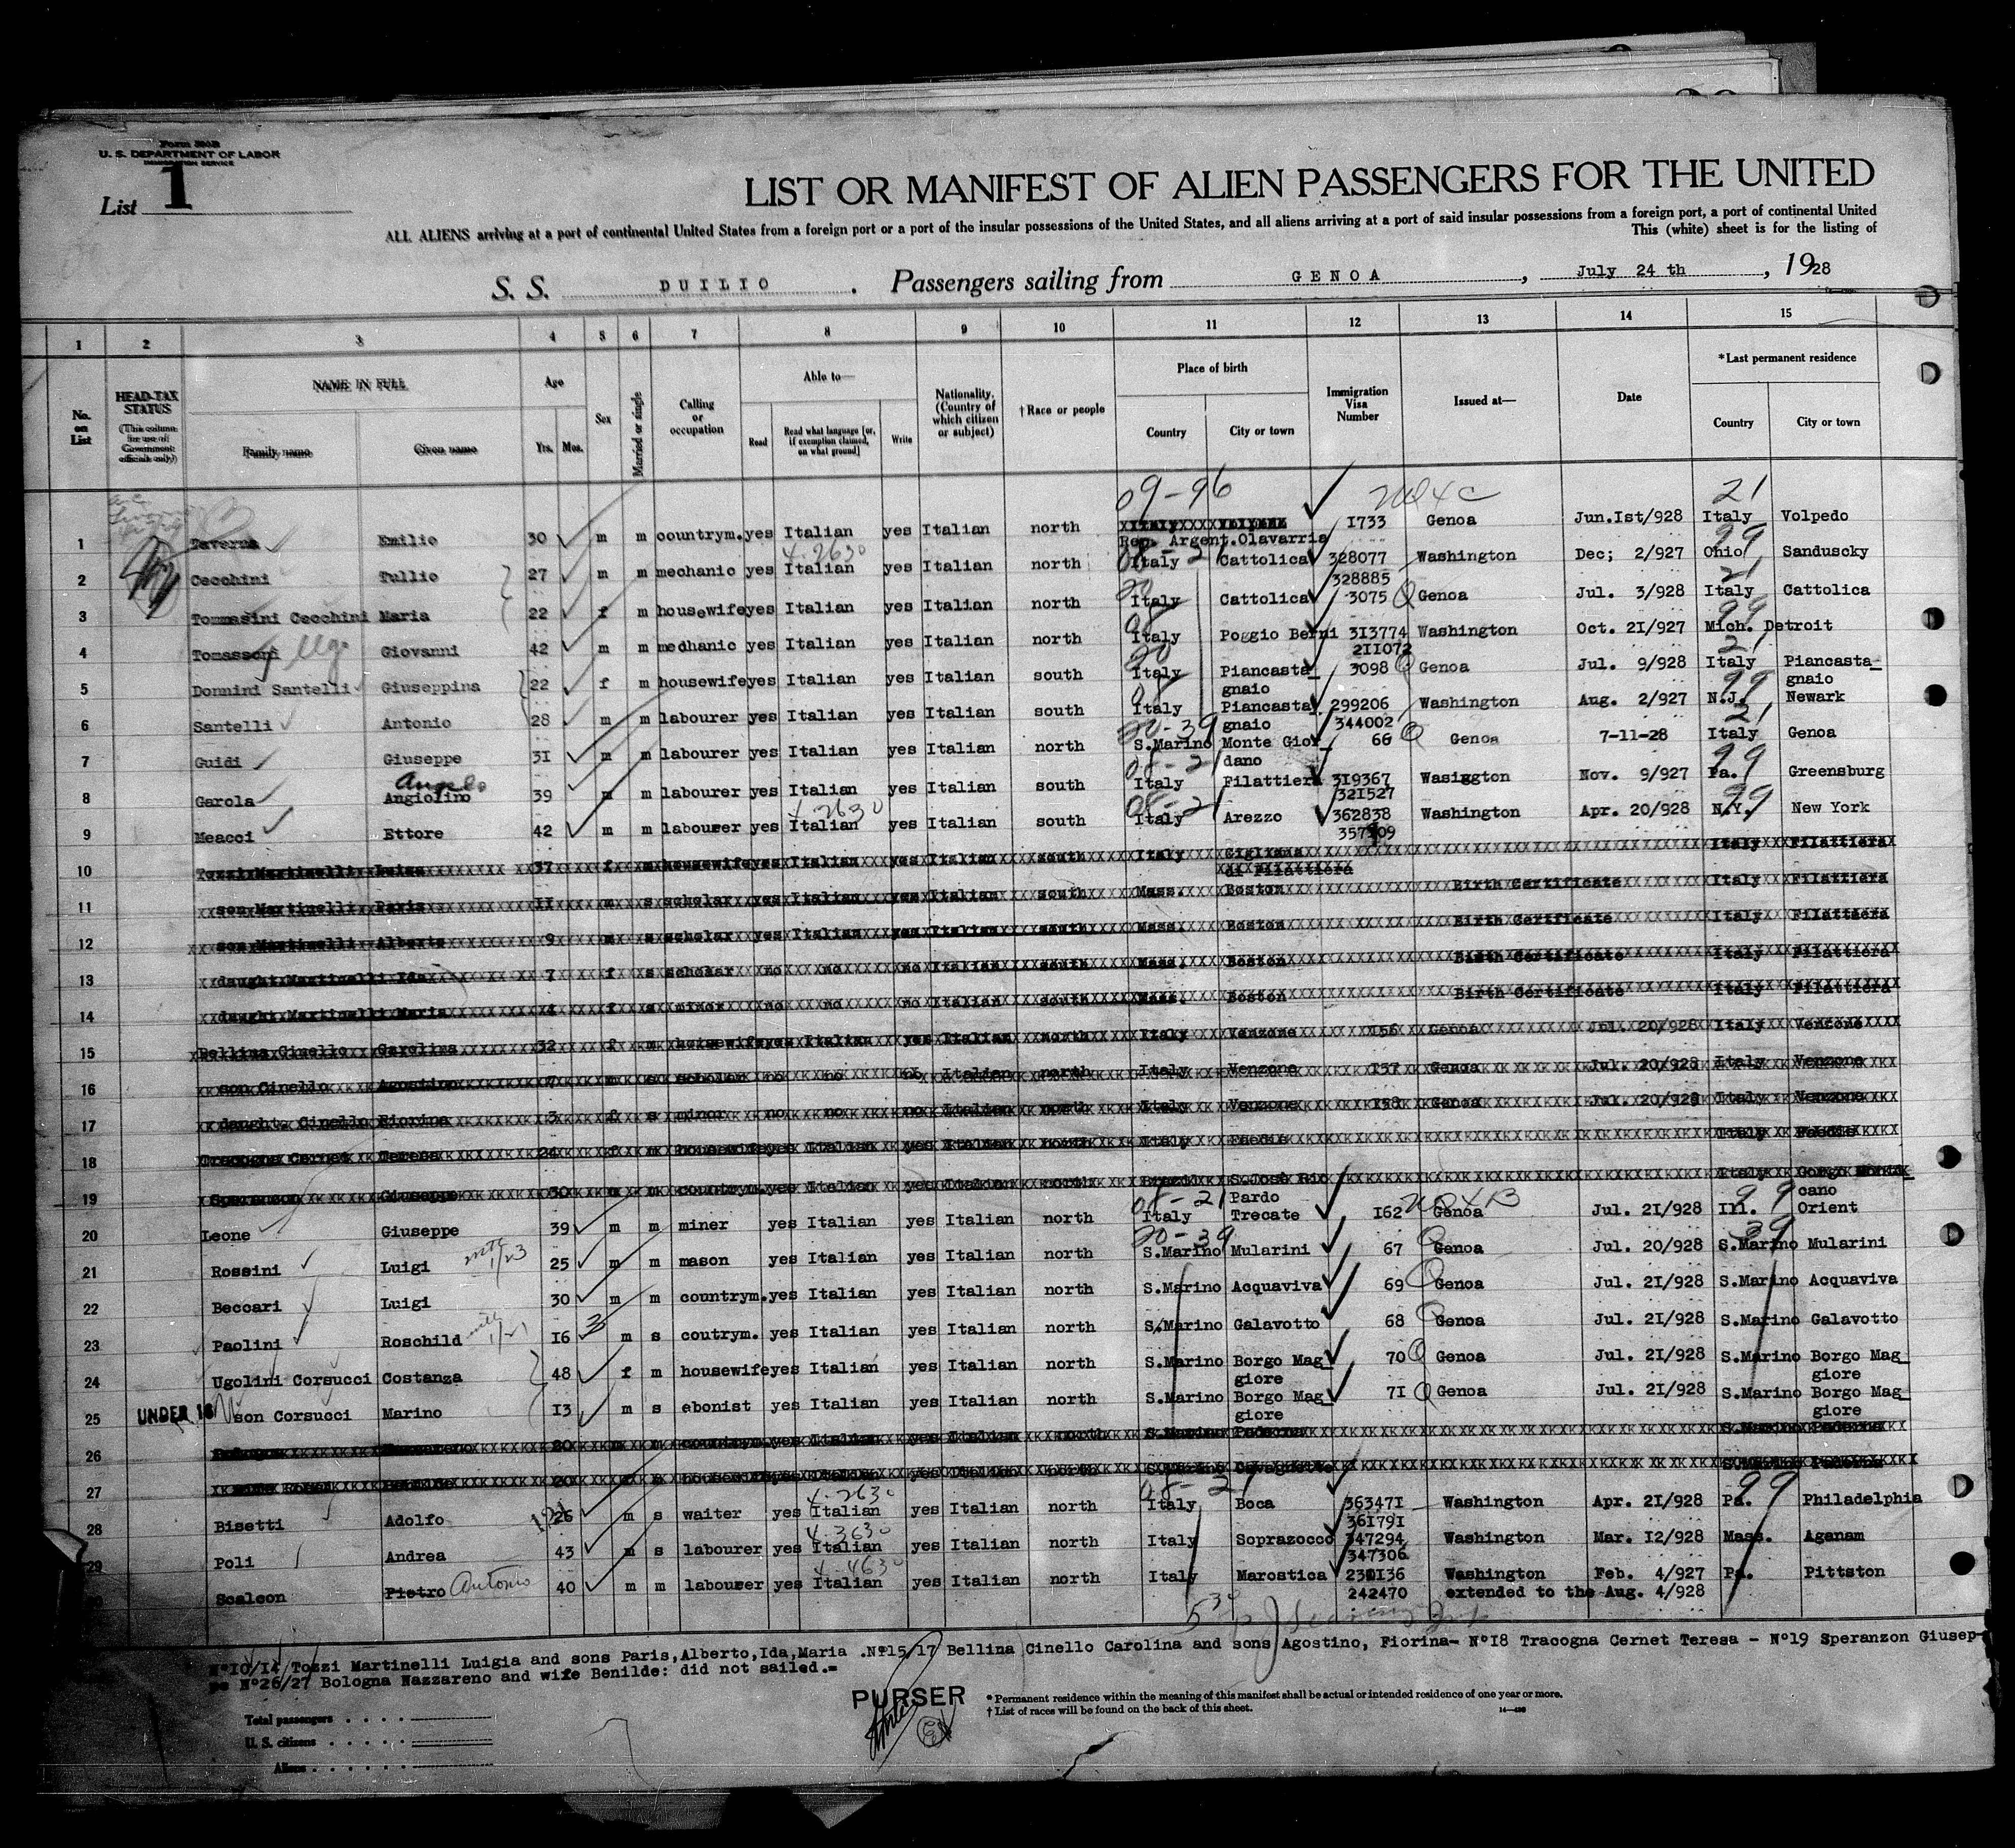 Form 500B
U. S. DEPARTMENT OF LABOR
IMMIGRATION SERVICE
List 1
LIST OR MANIFEST OF ALIEN PASSENGERS FOR THE UNITED
ALL ALIENS arriving at a port of continental United States from a foreign port or a port of the insular possessions of the United States, and all aliens arriving at a port of said insular possessions from a foreign port, a port of continental United
This (white) sheet is for the listing of
S. S. DUILIO . Passengers sailing from GENOA , July 24 th , 1928
1 2 3 4 5 6 7 8 9 10 11 12 13 14 15
No. on List
HEAD-TAX STATUS (This column for use of Government officials only)
NAME IN FULL Family name Given name
Age Yrs. Mos.
Sex
Married or single
Calling or occupation
Able to— Read Read what language [or, if exemption claimed, on what ground] Write
Nationality. (Country of which citizen or subject)
†Race or people
Place of birth Country City or town
Immigration Visa Number
Issued at—
Date
*Last permanent residence Country City or town
09-96 21
1 Taverna Emilio 30 m m countrym. yes Italian yes Italian north 1733 Genoa Jun.Ist/928 Italy Volpedo
Rep. Argent.Olavarria
4.2630 99
2 Cecchini Tullio 27 m m mechanic yes Italian yes Italian north Italy Cattolica 328077 Washington Dec; 2/927 Ohio Sanduscky
328885
3 Tommasini Cecchini Maria 22 f m housewife yes Italian yes Italian north Italy Cattolica 3075 Genoa Jul. 3/928 Italy Cattolica
4 Tomassoni Ugo Giovanni 42 m m medhanic yes Italian yes Italian north Italy Poggio Berni 313774 Washington Oct. 21/927 Mich. Detroit
211072
5 Donnini Santelli Giuseppina 22 f m housewife yes Italian yes Italian south Italy Piancasta_ 3098 Genoa Jul. 9/928 Italy Piancasta_
gnaio gnaio
6 Santelli Antonio 28 m m labourer yes Italian yes Italian south Italy Piancasta_ 299206 Washington Aug. 2/927 N.J. Newark
gnaio 344002
7 Guidi Giuseppe 31 m m labourer yes Italian yes Italian north S.Marino Monte Gior_ 66 Genoa 7-11-28 Italy Genoa
dano
Angelo
8 Garola Angiolino 39 m m labourer yes Italian yes Italian south Italy Filattiera 319367 Wasiggton Nov. 9/927 Pa. Greensburg
321527
4-2630
9 Meacci Ettore 42 m m labourer yes Italian yes Italian south Italy Arezzo 362838 Washington Apr. 20/928 N.Y. New York
10 Tozzi Martinelli Luisa 37 f m housewife yes Italian yes Italian south Italy Gigliana Italy Filattiera
di Filattiera
11 son Martinelli Paris 11 m s scholar yes Italian yes Italian south Mass. Boston Birth Certificate Italy Filattiera
12 son Martinelli Alberto 9 m s scholar yes Italian yes Italian south Mass. Boston Birth Certificate Italy Filattiera
13 daught Martinelli Ida 7 f s scholar no no no Italian south Mass. Boston Birth Certificate Italy Filattiera
14 daught Martinelli Maria 4 f s minor no no no Italian south Mass. Boston Birth Certificate Italy Filattiera
15 Bellina Cinello Carolina 32 f m housewife yes Italian yes Italian north Italy Venzone 156 Genoa Jul. 20/928 Italy Venzone
16 son Cinello Agostino 7 m s scholar no no no Italian north Italy Venzone 157 Genoa Jul. 20/928 Italy Venzone
17 daught. Cinello Fiorina 3 f s minor no no no Italian north Italy Venzone 158 Genoa Jul. 20/928 Italy Venzone
18 Tracogna Cernet Teresa 24 f m housewife yes Italian yes Italian north Italy Faedis Italy Faedis
19 Speranzon Giuseppe 30 m m countrym. yes Italian yes Italian north Brazil S.José Rio Italy Gorgo
Pardo cano
20 Leone Giuseppe 39 m m miner yes Italian yes Italian north Italy Trecate 162 Genoa Jul. 21/928 Ill. Orient
20-39 39
21 Rossini Luigi 25 m m mason yes Italian yes Italian north S.Marino Mularini 67 Genoa Jul. 20/928 S.Marino Mularini
22 Beccari Luigi 30 m m countrym. yes Italian yes Italian north S.Marino Acquaviva 69 Genoa Jul. 21/928 S.Marino Acquaviva
23 Paolini Roschild 16 m s coutrym. yes Italian yes Italian north S.Marino Galavotto 68 Genoa Jul. 21/928 S.Marino Galavotto
24 Ugolini Corsucci Costanza 48 f m housewife yes Italian yes Italian north S.Marino Borgo Mag_ 70 Genoa Jul. 21/928 S.Marino Borgo Mag_
giore giore
25 UNDER 16 son Corsucci Marino 13 m s ebonist yes Italian yes Italian north S.Marino Borgo Mag_ 71 Genoa Jul. 21/928 S.Marino Borgo Mag_
giore giore
26 Bologna Nazzareno 20 m m countrym. yes Italian yes Italian north S.Marino Paderna S.Marino Paderna
27
4.2630
28 Bisetti Adolfo 26 m s waiter yes Italian yes Italian north Italy Boca 363471 Washington Apr. 21/928 Pa. Philadelphia
361791
4.3630
29 Poli Andrea 43 m s labourer yes Italian yes Italian north Italy Soprazocco 347294 Washington Mar. 12/928 Mass. Aganam
347306
4-4630
Scalcon Pietro Antonio 40 m m labourer yes Italian yes Italian north Italy Marostica 230136 Washington Feb. 4/927 Pa. Pittston
242470 extended to the Aug. 4/928
N°10/14 Tozzi Martinelli Luigia and sons Paris,Alberto,Ida,Maria .N°15/17 Bellina Cinello Carolina and sons Agostino, Fiorina- N°18 Tracogna Cernet Teresa - N°19 Speranzon Giusep-
pe N°26/27 Bologna Nazzareno and wife Benilde: did not sailed.=
PURSER
* Permanent residence within the meaning of this manifest shall be actual or intended residence of one year or more.
† List of races will be found on the back of this sheet.
Total passengers
U. S. citizens
Aliens